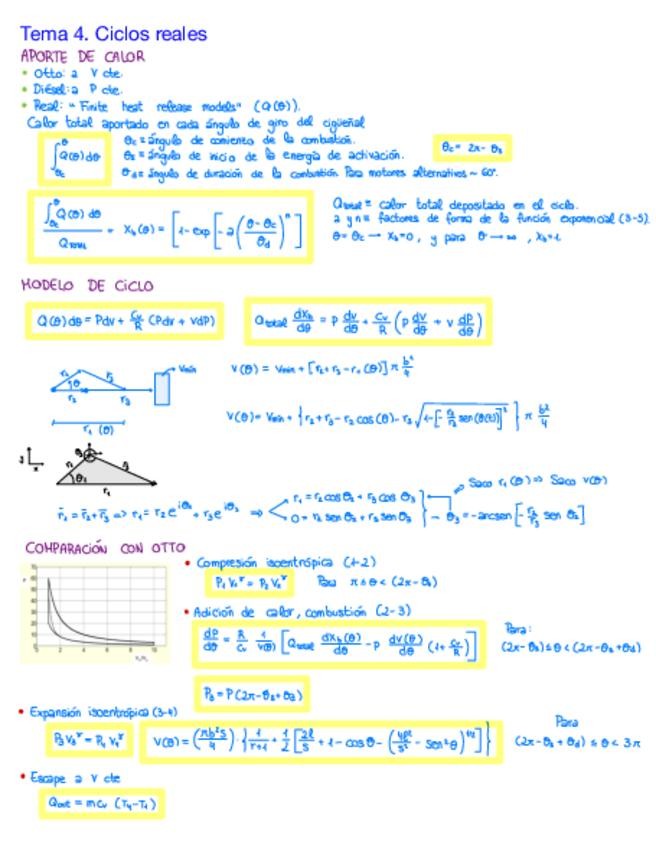 Tema 4. Ciclos reales
APORTE DE CALOR
• Otto: a V cte.
• Diésel: a P cte.
• Real: "Finite heat release models" (Q(θ)).
Calor total aportado en cada ángulo de giro del cigüeñal
∫_θc^θ Q(θ) dθ
θc = ángulo de comienzo de la combustión.
θs = ángulo de inicio de la energía de activación.
θd = ángulo de duración de la combustión. Para motores alternativos ~ 60°.
θc = 2π - θs
∫_θc^θ Q(θ) dθ / Qtotal = Xb(θ) = [1 - exp[-a((θ-θc)/θd)^n]]
Qtotal = calor total depositado en el ciclo.
a y n = factores de forma de la función exponencial (3-5).
θ = θc → Xb=0, y para θ → ∞, Xb=1
MODELO DE CICLO
Q(θ)dθ = Pdv + Cv/R (Pdv + vdP)
Qtotal dXb/dθ = P dv/dθ + Cv/R (P dv/dθ + v dP/dθ)
r2 θ r3 Vmín
r2 r3
r1 (θ)
V(θ) = Vmín + [r2 + r3 - r1(θ)] π b²/4
V(θ) = Vmín + {r2 + r3 - r2 cos(θ) - r3 √(1-[-r2/r3 sen(θ(t))]²)} π b²/4
y x
θ3 r2 r3 θ2 r1
r̄1 = r̄2 + r̄3 => r1 = r2 e^iθ2 + r3 e^iθ3 => r1 = r2 cos θ2 + r3 cos θ3
0 = r2 sen θ2 + r3 sen θ3 → θ3 = -arcsen[-r2/r3 sen θ2]
Saco r1(θ) => Saco V(θ)
COMPARACIÓN CON OTTO
70
60
50
40
30
20
10
0 2 4 6 8 10
• Compresión isoentrópica (1-2)
P1 V1^γ = P2 V2^γ Para π ≤ θ < (2π - θs)
• Adición de calor, combustión (2-3)
dP/dθ = R/Cv 1/V(θ) [Qtotal dXb(θ)/dθ - P dV(θ)/dθ (1 + Cv/R)]
Para:
(2π-θs) ≤ θ < (2π-θs+θd)
P3 = P(2π-θs+θd)
• Expansión isoentrópica (3-4)
P3 V3^γ = P4 V4^γ
V(θ) = (πb²s/4) · {1/(r-1) + 1/2 [2l/s + 1 - cos θ - (4l²/s² - sen²θ)^1/2]}
Para
(2π-θs+θd) ≤ θ < 3π
• Escape a V cte
Qout = m cv (T4-T1)